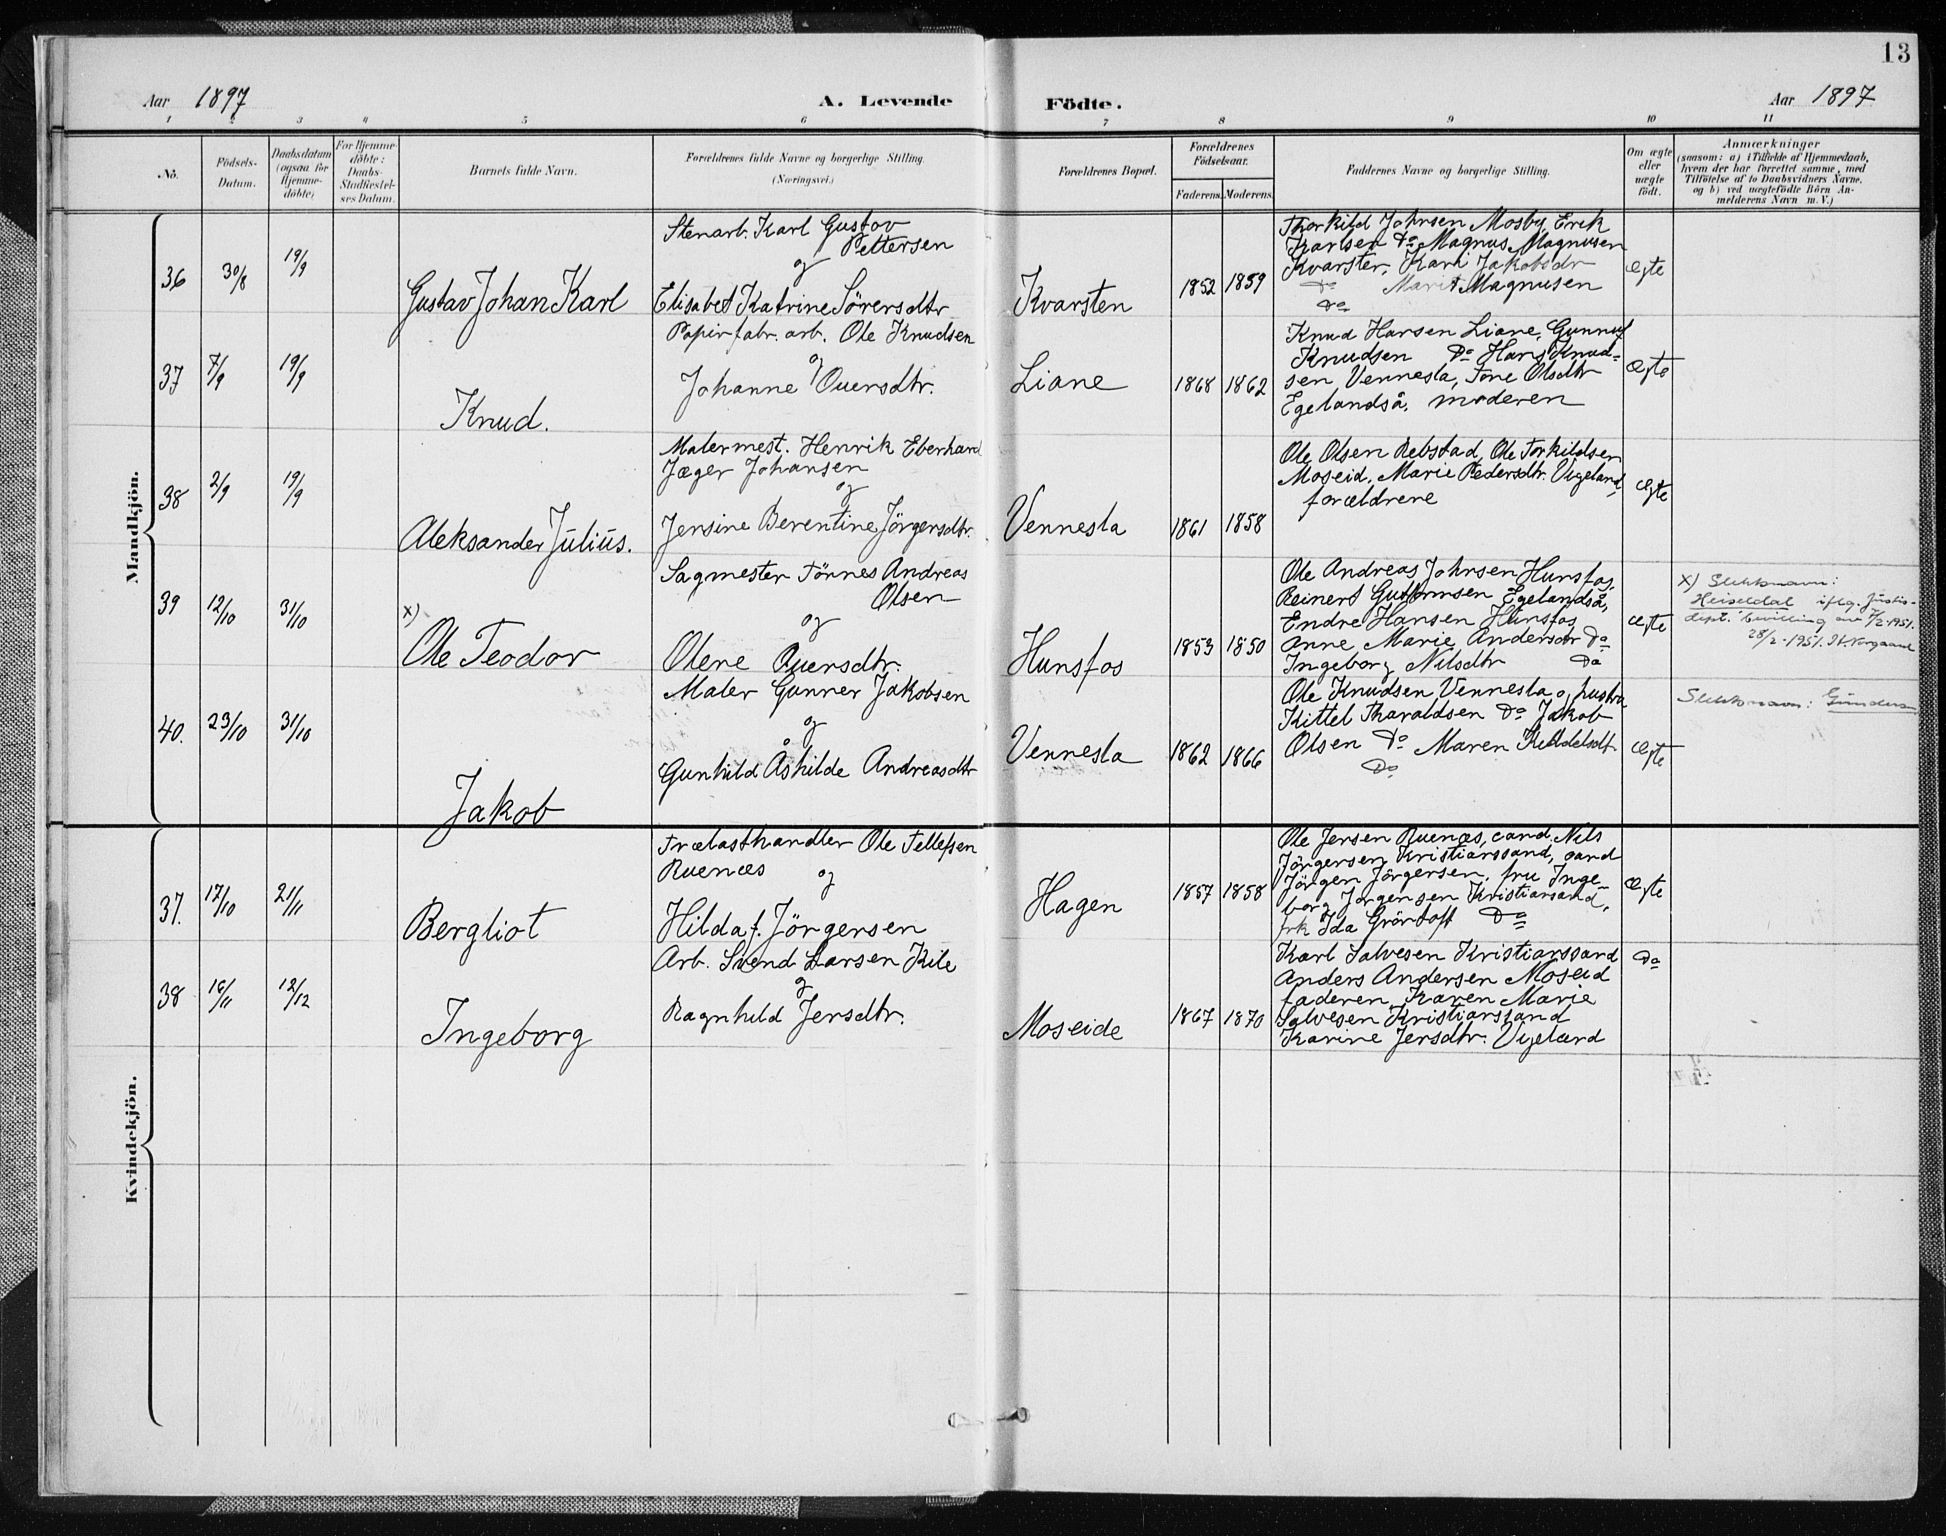 13
Aar 1897 A. Levende Födte. Aar 1897
1 2 3 4 5 6 7 8 9 10 11
No.
Födsels-
Datum.
Daabsdatum
(ogsaa for
Hjemme-
döbte)
For Hjemme-
döbte:
Daabs-
Stadfæstel-
ses Datum.
Barnets fulde Navn.
Forældrenes fulde Navne og borgerlige Stilling.
(Næringsvei.)
Forældrenes Bopæl.
Forældrenes
Födselsaar.
Faderens. Moderens.
Faddernes Navne og borgerlige Stilling.
Om ægte
eller
uægte
födt.
Anmærkninger
(saasom: a) i Tilfælde af Hjemmedaab,
hvem der har forrettet samme, med
Tilföielse af to Daabsvidners Navne,
og b) ved uægtefödte Börn An-
melderens Navn m. V.)
Mandkjön.
36 30/8 19/9
Gustav Johan Karl
Stenarb. Karl Gustov
Pettersen
og
Elisabet Katrine Sörensdtr
Kvarsten
1852 1859
Thorkild Johnsen Mosby, Erik
Karlsen Do Magnus Magnusen
Kvarsten, Kari Jakobsdr
Do Marit Magnusen
Do
Ægte
37 7/9 19/9
Knud.
Papirfabr. arb. Ole Knudsen
og
Johanne Ouensdtr.
Liane
1868 1862
Knud Hansen Liane, Gunnuf
Knudsen Do Hans Knud-
sen, Vennesla, Tone Olsdtr
Egelandså. moderen
Ægte
38 2/9 19/9
Aleksander Julius.
Malermest. Henrik Eberhard
Jæger Johansen
og
Jensine Berentine Jörgensdtr.
Vennesla
1861 1858
Ole Olsen Rebstad, Ole Torkildsen
Moseid, Marie Pedersdtr. Vigeland,
forældrene
Ægte
39 12/10 31/10
x)
Ole Teodor
Sagmester Tönnes Andreas
Olsen
og
Olene Ouensdtr.
Hunsfos
1853 1850
Ole Andreas Johnsen Hunsfos,
Reinert Guttormsen Egelandså,
Endre Hansen Hunsfos
Anne Marie Andersdtr Do
Ingeborg Nilsdtr Do
Ægte
x) Slektsnavn:
Heiseldal iflg. Justis-
dept. bevilling av 7/2-1951.
28/2-1951.
40. 23/10 31/10
Jakob
Maler Gunner Jakobsen
og
Gunhild Åshilde Andreasdtr
Vennesla
1862 1866
Ole Knudsen Vennesla og hustru
Kittel Tharaldsen Do Jakob
Olsen Do Maren Kiddelsdt
Do
Ægte
Slektsnavn: Gundersen
Kvindekjön.
37. 17/10 21/11
Bergliot
Trælasthandler Ole Tellefsen
Ruenæs og
Hilda f. Jörgensen
Hagen
1857 1858
Ole Jensen Ruenæs, cand. Nils
Jörgensen Kristianssand, cand
Jörgen Jörgensen, fru Inge-
borg Jörgensen Kristianssand,
frk Ida Gröntoft Do
Ægte
38 16/11 12/12
Ingeborg
Arb. Svend Larsen Kile
og
Ragnhild Jensdtr.
Moseide
1867 1870
Karl Salvesen Kristianssand
Anders Andersen Moseid
faderen, Karen Marie
Salvesen Kristianssand
Karine Jensdtr. Vigeland
Do